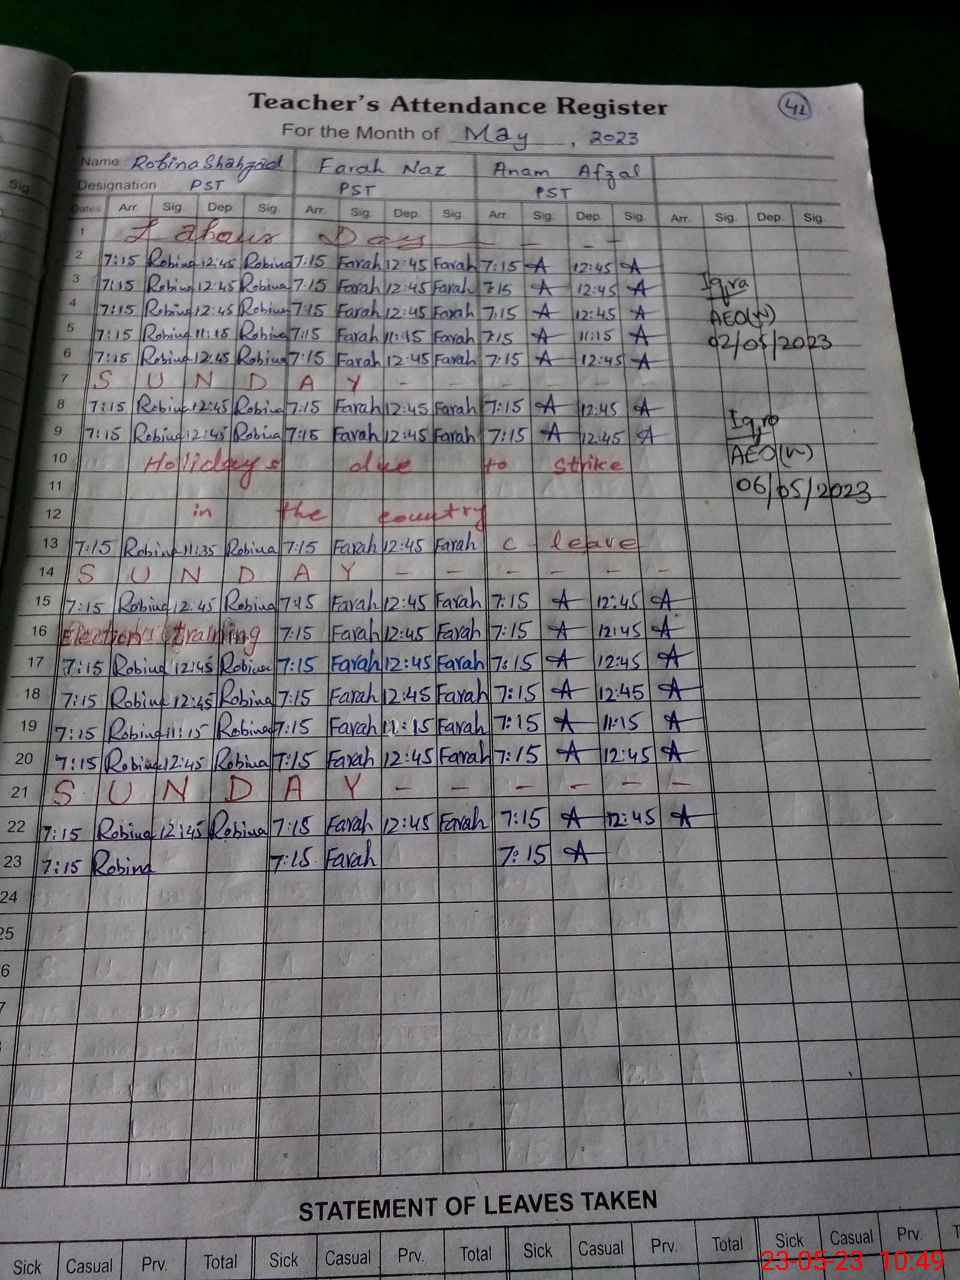 Teacher's Attendance Register
42
For the Month of May, 2023
Name Robina Shahzad Farah Naz Anam Afzal
Designation PST PST PST
Dates Arr. Sig. Dep. Sig. Arr. Sig. Dep. Sig. Arr. Sig. Dep. Sig. Arr. Sig. Dep. Sig.
1 Labour Day — - - -
2 7:15 Robina 12:45 Robina 7:15 Farah 12:45 Farah 7:15 A 12:45 A
3 7:15 Robina 12:45 Robina 7:15 Farah 12:45 Farah 7:15 A 12:45 A
Iqra
4 7:15 Robina 12:45 Robina 7:15 Farah 12:45 Farah 7:15 A 12:45 A
AEO(W)
5 7:15 Robina 11:15 Robina 7:15 Farah 11:15 Farah 7:15 A 11:15 A
02/05/2023
6 7:15 Robina 12:45 Robina 7:15 Farah 12:45 Farah 7:15 A 12:45 A
7 S U N D A Y - - - - - -
8 7:15 Robina 12:45 Robina 7:15 Farah 12:45 Farah 7:15 A 12:45 A
Iqra
9 7:15 Robina 12:45 Robina 7:15 Farah 12:45 Farah 7:15 A 12:45 A
AEO(W)
10 Holidays due to strike
11
06/05/2023
12 in the country
13 7:15 Robina 11:35 Robina 7:15 Farah 12:45 Farah C leave
14 S U N D A Y - - - - - -
15 7:15 Robina 12:45 Robina 7:15 Farah 12:45 Farah 7:15 A 12:45 A
16 Election's training 7:15 Farah 12:45 Farah 7:15 A 12:45 A
17 7:15 Robina 12:45 Robina 7:15 Farah 12:45 Farah 7:15 A 12:45 A
18 7:15 Robina 12:45 Robina 7:15 Farah 12:45 Farah 7:15 A 12:45 A
19 7:15 Robina 11:15 Robina 7:15 Farah 11:15 Farah 7:15 A 11:15 A
20 7:15 Robina 12:45 Robina 7:15 Farah 12:45 Farah 7:15 A 12:45 A
21 S U N D A Y - - - - - -
22 7:15 Robina 12:45 Robina 7:15 Farah 12:45 Farah 7:15 A 12:45 A
23 7:15 Robina 7:15 Farah 7:15 A
24
25
6
7
STATEMENT OF LEAVES TAKEN
Sick Casual Prv. Total Sick Casual Prv. Total Sick Casual Prv. Total Sick Casual Prv. T
23-05-23 10:49
Sig.